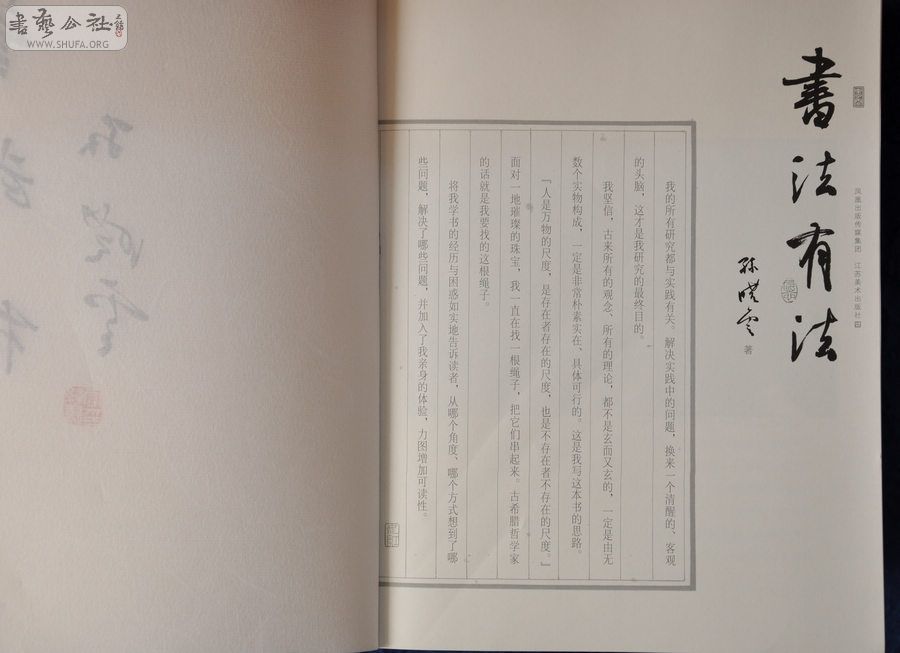 書藝公社
WWW.SHUFA.ORG
書法有法
孙晓云
著
凤凰出版传媒集团 江苏美术出版社
我的所有研究都与实践有关。解决实践中的问题，换来一个清醒的、客观
的头脑，这才是我研究的最终目的。
我坚信，古来所有的观念、所有的理论，都不是玄而又玄的，一定是由无
数个实物构成，一定是非常朴素实在、具体可行的。这是我写这本书的思路。
「人是万物的尺度，是存在者存在的尺度，也是不存在者不存在的尺度。」
面对一地璀璨的珠宝，我一直在找一根绳子，把它们串起来。古希腊哲学家
的话就是我要找的这根绳子。
将我学书的经历与困惑如实地告诉读者，从哪个角度、哪个方式想到了哪
些问题，解决了哪些问题，并加入了我亲身的体验，力图增加可读性。